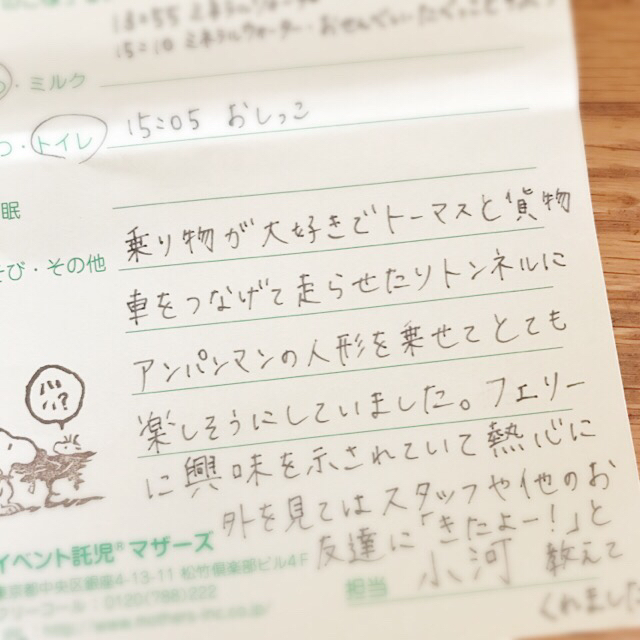 15:10 ミネラルウォーター・おせんべい
・ミルク
・トイレ 15:05 おしっこ
眠
そび・その他
乗り物が大好きでトーマスと貨物
車をつなげて走らせたりトンネルに
アンパンマンの人形を乗せてとても
楽しそうにしていました。フェリー
に興味を示されていて熱心に
外を見てはスタッフや他のお
友達に「きたよー!」と
教えて
くれました
イベント託児® マザーズ
東京都中央区銀座4-13-11 松竹倶楽部ビル4F
担当 小河